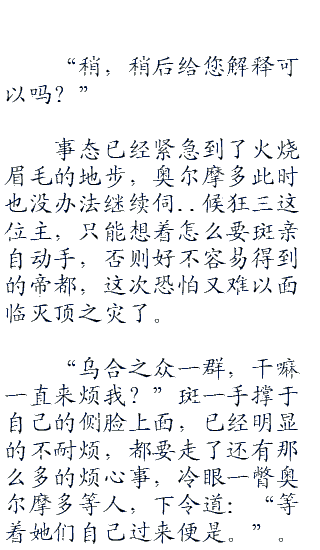 “稍，稍后给您解释可
以吗？”
事态已经紧急到了火烧
眉毛的地步，奥尔摩多此时
也没办法继续伺..候狂三这
位主，只能想着怎么要斑亲
自动手，否则好不容易得到
的帝都，这次恐怕又难以面
临灭顶之灾了。
“乌合之众一群，干嘛
一直来烦我？”斑一手撑于
自己的侧脸上面，已经明显
的不耐烦，都要走了还有那
么多的烦心事，冷眼一瞥奥
尔摩多等人，下令道：“等
着她们自己过来便是。”。